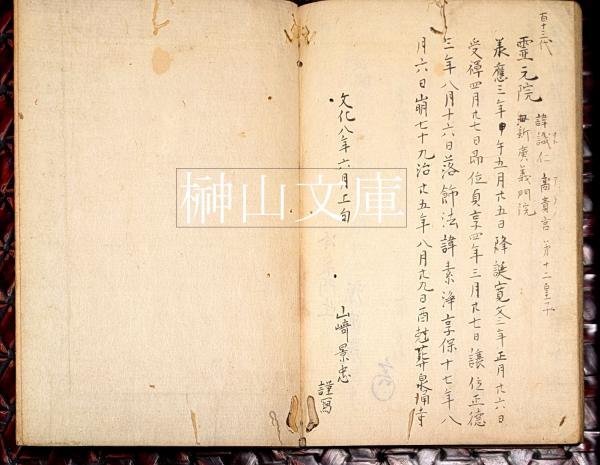 百十三代
霊元院 諱識仁 高貴宮 第十二皇子
母新廣義門院
承應三年甲午五月廿五日降誕寛文三年正月廿六日
受禅四月廿七日即位貞享四年三月廿七日譲位正徳
三年八月十六日落飾法諱素浄享保十七年八
月六日崩七十九治廿五年八月廿九日酉尅葬泉涌寺
文化八年六月上旬
山﨑景忠
謹寫
榊山文庫